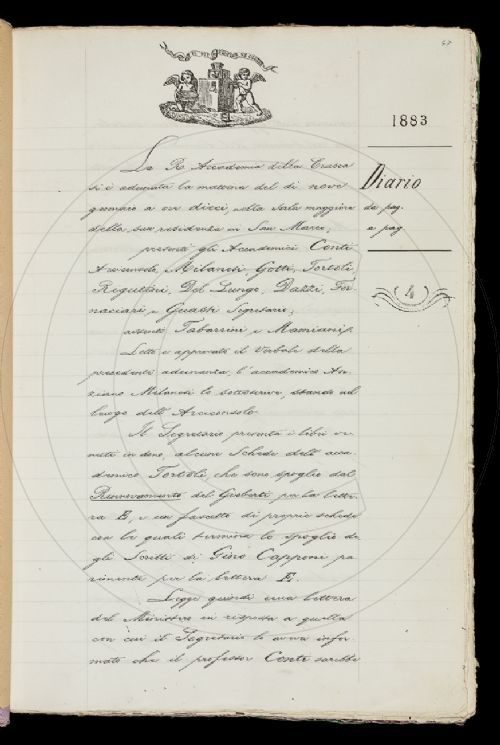 1883
Diario
da pag.
a pag.
(4)
La R. Accademia della Crusca
si è adunata la mattina del dì nove
gennaio a ore dieci, nella Sala maggiore
della sua residenza in San Marco;
presenti gli Accademici Conti
Arciconsolo, Milanesi, Gotti, Tortoli,
Rigutini, Del Lungo, Dazzi, For-
naciari, e Guasti Segretario;
assenti Tabarrini e Mamiani.
Letto e approvato il Verbale della
precedente adunanza, l'accademico An-
ziano Milanesi lo sottoscrive, stando nel
luogo dell'Arciconsolo.
Il Segretario presenta i libri ve-
nuti in dono, alcune Schede dell'acca-
demico Tortoli che sono spoglio dal
Rinnovamento del Gioberti per la lette-
ra E, e un fascetto di proprie schede
con le quali termina lo spoglio de-
gli Scritti di Gino Capponi pa-
rimente per la lettera E.
Legge quindi una lettera
del Ministro in risposta a quella
con cui il Segretario lo aveva infor-
mato che il professor Conti sarebbe